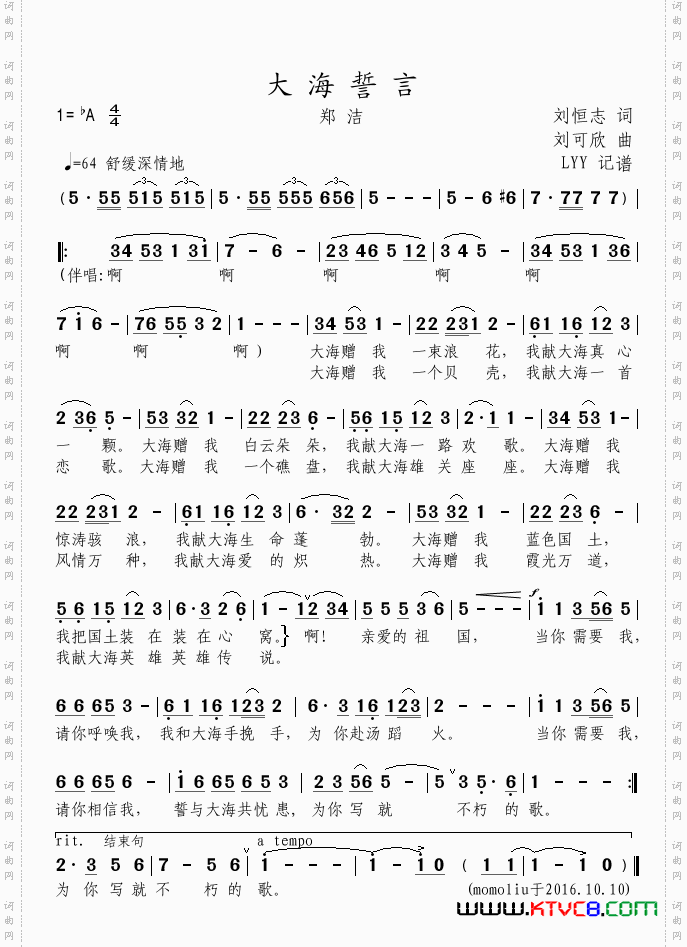 大海誓言
1=♭A 4/4 郑 洁 刘恒志 词
刘可欣 曲
♩=64 舒缓深情地 LYY 记谱
(5·55 515 515|5·55 555 656|5 - - -|5 - 6 #6|7·77 7 7)|
‖: 34 53 1 31|7 - 6 -|23 46 5 12|3 4 5 -|34 53 1 36|
(伴唱:啊 啊 啊 啊 啊
7 1 6 -|76 55 3 2|1 - - -|34 53 1 -|22 231 2 -|61 16 12 3|
啊 啊 啊 ) 大海赠 我 一束浪 花, 我献大海真 心
大海赠 我 一个贝 壳, 我献大海一 首
2 36 5 -|53 32 1 -|22 23 6 -|56 15 12 3|2·1 1 -|34 53 1 -|
一 颗。 大海赠 我 白云朵 朵, 我献大海一 路 欢 歌。 大海赠 我
恋 歌。 大海赠 我 一个礁 盘, 我献大海雄 关 座 座。 大海赠 我
22 231 2 -|61 16 12 3|6· 32 2 -|53 32 1 -|22 23 6 -|
惊涛骇 浪, 我献大海生 命 蓬 勃。 大海赠 我 蓝色国 土,
风情万 种, 我献大海爱 的 炽 热。 大海赠 我 霞光万 道,
56 15 12 3|6·3 2 6|1 - 12 34|5 5 5 36|5 - - -|1 1 3 56 5|
我把国土装 在 装 在 心 窝。} 啊! 亲爱的 祖 国, 当你 需要 我,
我献大海英 雄 英 雄 传 说。
6 6 65 3 -|61 16 123 2|6·3 16 123|2 - - -|1 1 3 56 5|
请你呼唤我, 我和大海手挽 手, 为 你赴汤 蹈 火。 当你 需要 我,
6 6 65 6 -|16 65 65 3|2 3 56 5 -|5 3 5·6|1 - - -:‖
请你相信我, 誓与大海共忧 患, 为你 写 就 不朽 的 歌。
rit. 结束句 a tempo
2·3 5 6|7 - 5 6|1 - - -|1 - 1 0 ( 1 1|1 - 1 0)‖
为 你 写 就 不 朽 的 歌。 (momoliu于2016.10.10)
WWW.KTVC8.COM
词曲网
词曲网
词曲网
词曲网
词曲网
词曲网
词曲网
词曲网
词曲网
词曲网